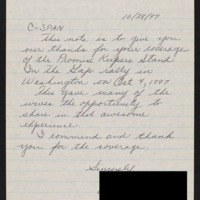 10/28/97
C-SPAN
This note is to give you
our thanks for your coverage
of the Promise Keepers Stand
In the Gap rally in
Washington on Oct 4, 1997
This gave many of the
wives the opportunity to
share in that awesome
experience.
I commend and thank
you for the coverage.
Sincerely